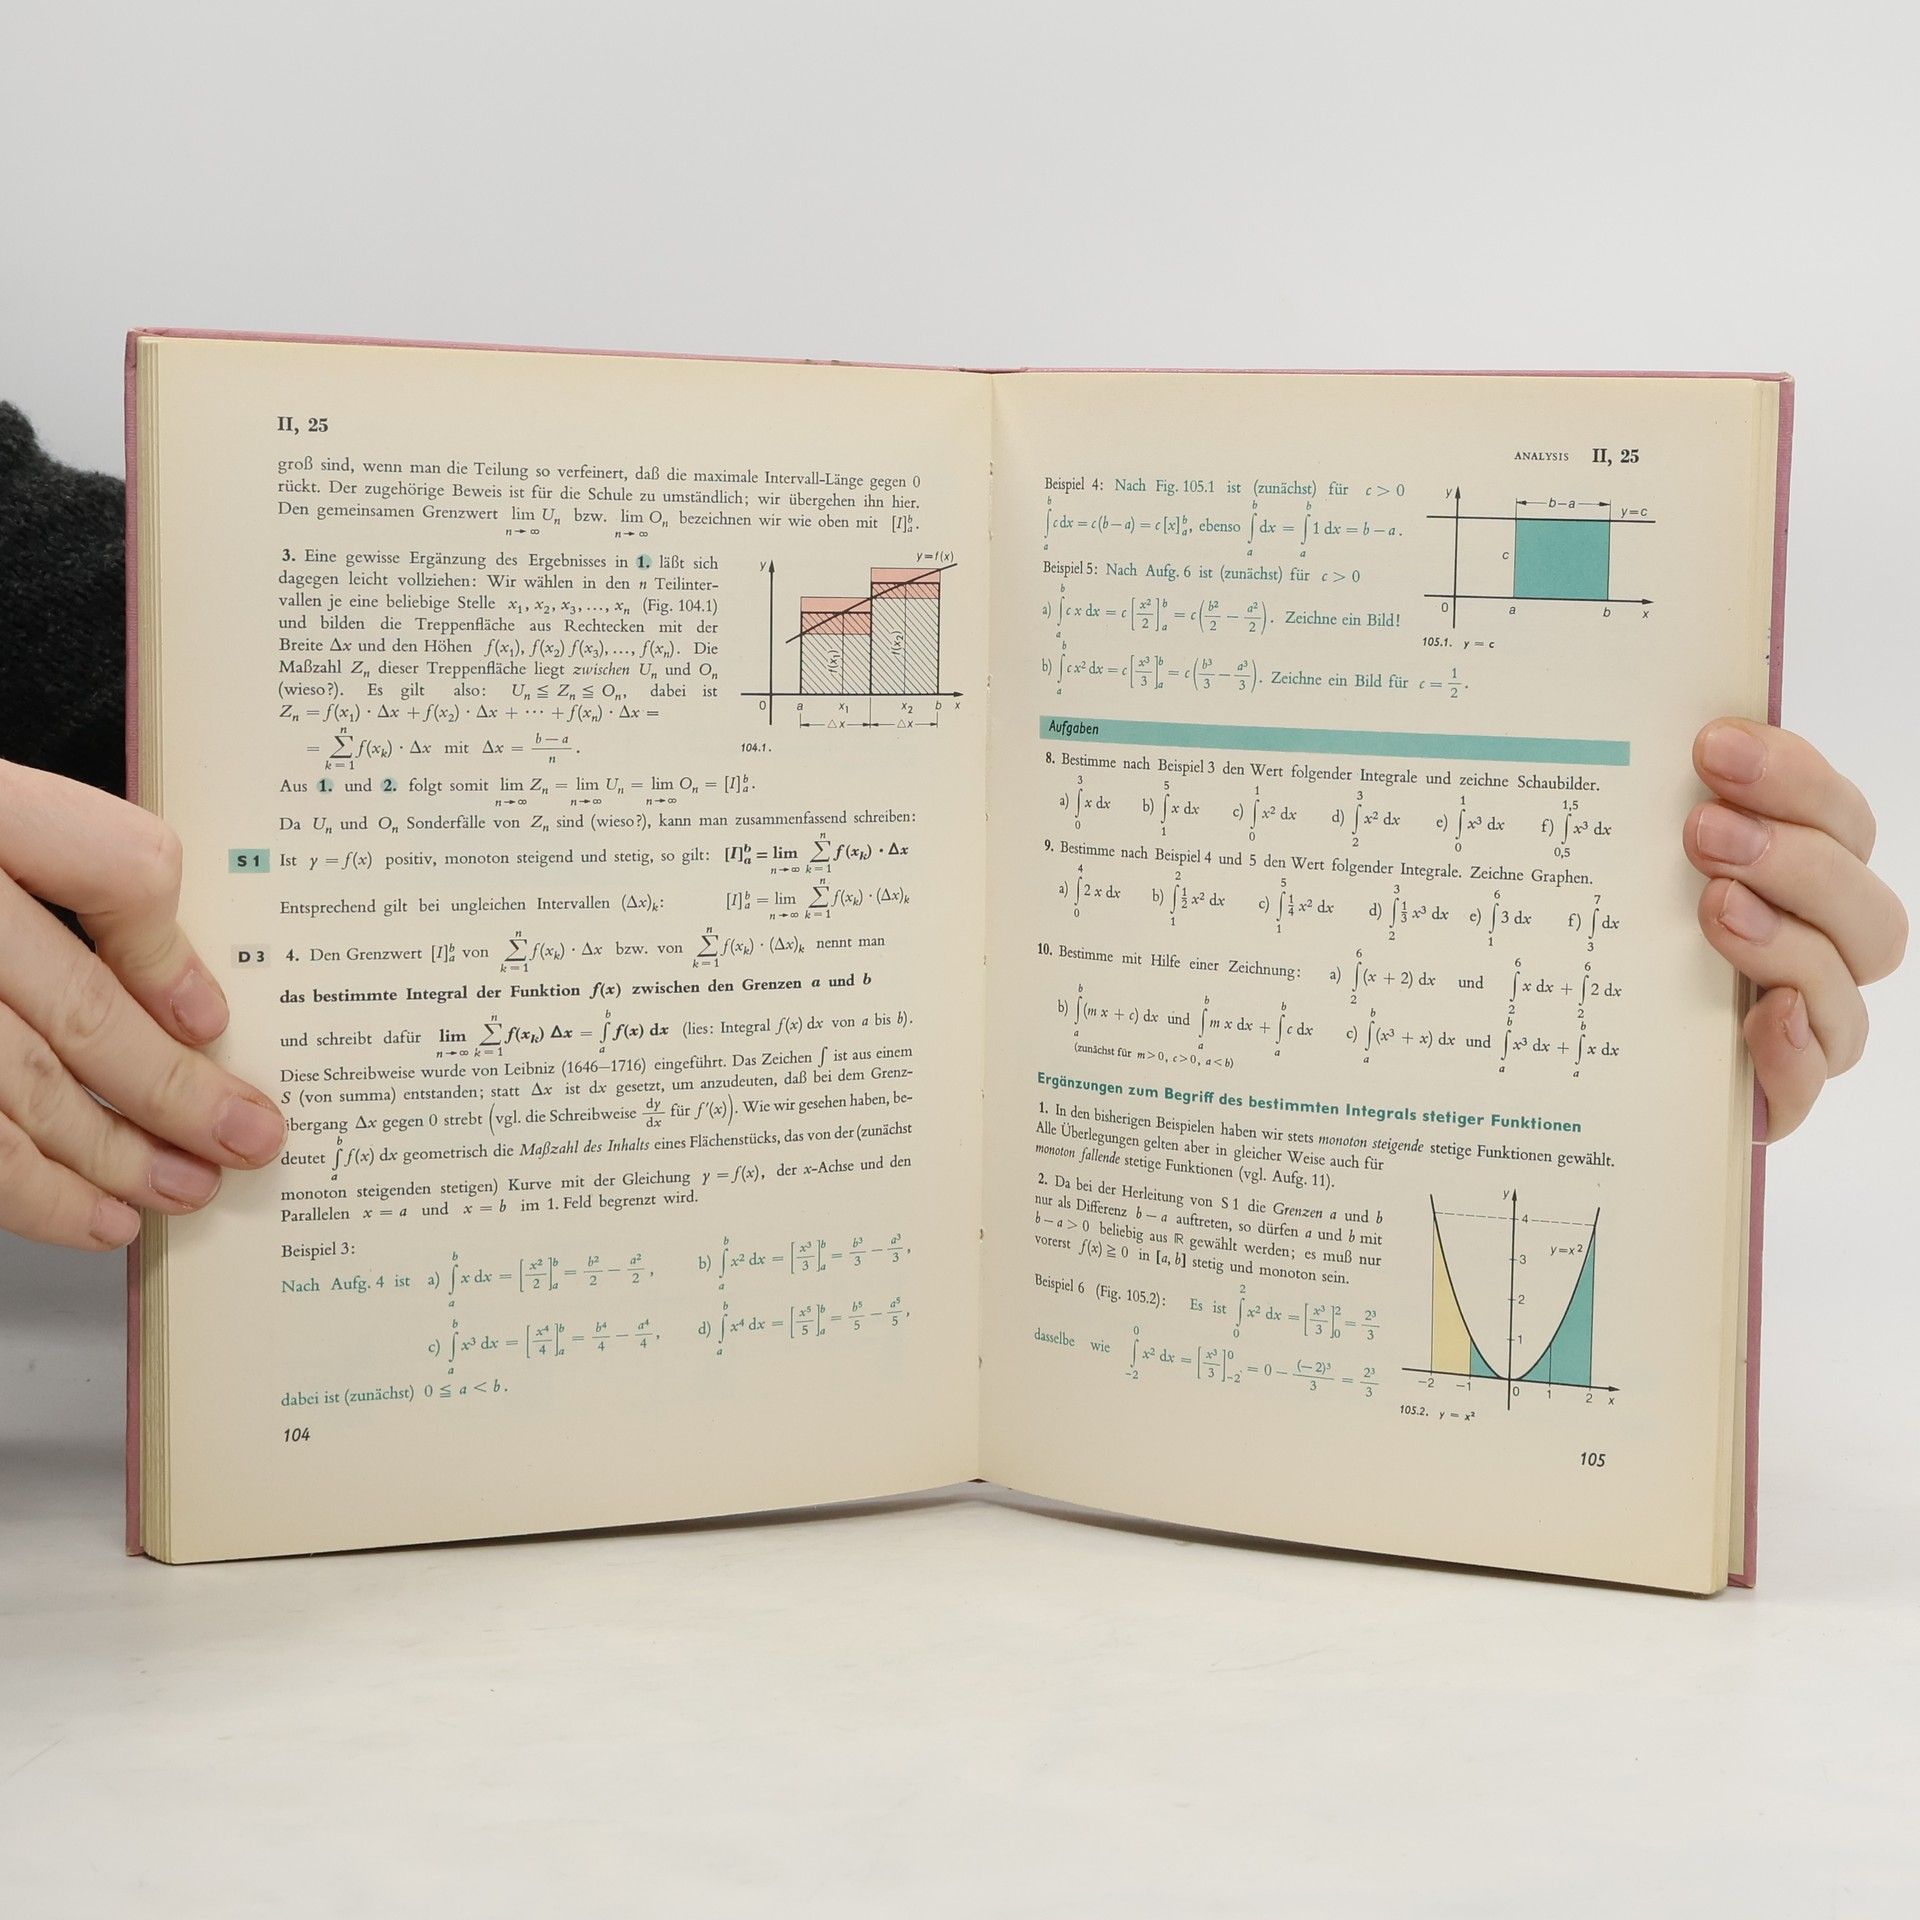 II, 25
groß sind, wenn man die Teilung so verfeinert, daß die maximale Intervall-Länge gegen 0
rückt. Der zugehörige Beweis ist für die Schule zu umständlich; wir übergehen ihn hier.
Den gemeinsamen Grenzwert lim Uₙ bzw. lim Oₙ bezeichnen wir wie oben mit [I]ₐᵇ.
n→∞ n→∞
3. Eine gewisse Ergänzung des Ergebnisses in 1. läßt sich
dagegen leicht vollziehen: Wir wählen in den n Teilinter-
vallen je eine beliebige Stelle x₁, x₂, x₃, ..., xₙ (Fig. 104.1)
und bilden die Treppenfläche aus Rechtecken mit der
Breite Δx und den Höhen f(x₁), f(x₂) f(x₃), ..., f(xₙ). Die
Maßzahl Zₙ dieser Treppenfläche liegt zwischen Uₙ und Oₙ
(wieso?). Es gilt also: Uₙ ≦ Zₙ ≦ Oₙ, dabei ist
Zₙ = f(x₁) · Δx + f(x₂) · Δx + ··· + f(xₙ) · Δx =
= ∑ₖ₌₁ⁿ f(xₖ) · Δx mit Δx = (b−a)/n.
y
y=f(x)
f(x₁) f(x₂)
0 a x₁ x₂ b x
Δx Δx
104.1.
Aus 1. und 2. folgt somit lim Zₙ = lim Uₙ = lim Oₙ = [I]ₐᵇ.
n→∞ n→∞ n→∞
Da Uₙ und Oₙ Sonderfälle von Zₙ sind (wieso?), kann man zusammenfassend schreiben:
S 1 Ist y = f(x) positiv, monoton steigend und stetig, so gilt: [I]ₐᵇ = lim ∑ₖ₌₁ⁿ f(xₖ) · Δx
n→∞
Entsprechend gilt bei ungleichen Intervallen (Δx)ₖ: [I]ₐᵇ = lim ∑ₖ₌₁ⁿ f(xₖ) · (Δx)ₖ
n→∞
D 3 4. Den Grenzwert [I]ₐᵇ von ∑ₖ₌₁ⁿ f(xₖ) · Δx bzw. von ∑ₖ₌₁ⁿ f(xₖ) · (Δx)ₖ nennt man
das bestimmte Integral der Funktion f(x) zwischen den Grenzen a und b
und schreibt dafür lim ∑ₖ₌₁ⁿ f(xₖ) Δx = ∫ₐᵇ f(x) dx (lies: Integral f(x) dx von a bis b).
n→∞
Diese Schreibweise wurde von Leibniz (1646–1716) eingeführt. Das Zeichen ∫ ist aus einem
S (von summa) entstanden; statt Δx ist dx gesetzt, um anzudeuten, daß bei dem Grenz-
übergang Δx gegen 0 strebt (vgl. die Schreibweise dy/dx für f′(x)). Wie wir gesehen haben, be-
deutet ∫ₐᵇ f(x) dx geometrisch die Maßzahl des Inhalts eines Flächenstücks, das von der (zunächst
monoton steigenden stetigen) Kurve mit der Gleichung y = f(x), der x-Achse und den
Parallelen x = a und x = b im 1. Feld begrenzt wird.
Beispiel 3:
Nach Aufg. 4 ist a) ∫ₐᵇ x dx = [x²/2]ₐᵇ = b²/2 − a²/2, b) ∫ₐᵇ x² dx = [x³/3]ₐᵇ = b³/3 − a³/3,
c) ∫ₐᵇ x³ dx = [x⁴/4]ₐᵇ = b⁴/4 − a⁴/4, d) ∫ₐᵇ x⁴ dx = [x⁵/5]ₐᵇ = b⁵/5 − a⁵/5,
dabei ist (zunächst) 0 ≦ a < b.
104
ANALYSIS II, 25
Beispiel 4: Nach Fig. 105.1 ist (zunächst) für c > 0
∫ₐᵇ c dx = c(b−a) = c[x]ₐᵇ, ebenso ∫ₐᵇ dx = ∫ₐᵇ 1 dx = b − a.
Beispiel 5: Nach Aufg. 6 ist (zunächst) für c > 0
a) ∫ₐᵇ c x dx = c[x²/2]ₐᵇ = c(b²/2 − a²/2). Zeichne ein Bild!
b) ∫ₐᵇ c x² dx = c[x³/3]ₐᵇ = c(b³/3 − a³/3). Zeichne ein Bild für c = 1/2.
y
b−a
y=c
c
0 a b x
105.1. y = c
Aufgaben
8. Bestimme nach Beispiel 3 den Wert folgender Integrale und zeichne Schaubilder.
a) ∫₀³ x dx b) ∫₁⁵ x dx c) ∫₀¹ x² dx d) ∫₂³ x² dx e) ∫₀¹ x³ dx f) ∫ x³ dx (0,5 1,5)
9. Bestimme nach Beispiel 4 und 5 den Wert folgender Integrale. Zeichne Graphen.
a) ∫₀⁴ 2 x dx b) ∫₁² 1/2 x² dx c) ∫₁⁵ 1/4 x² dx d) ∫₂³ 1/3 x³ dx e) ∫₁⁶ 3 dx f) ∫₃⁷ dx
10. Bestimme mit Hilfe einer Zeichnung: a) ∫₂⁶ (x + 2) dx und ∫₂⁶ x dx + ∫₂⁶ 2 dx
b) ∫ₐᵇ (m x + c) dx und ∫ₐᵇ m x dx + ∫ₐᵇ c dx c) ∫ₐᵇ (x³ + x) dx und ∫ₐᵇ x³ dx + ∫ₐᵇ x dx
(zunächst für m > 0, c > 0, a < b)
Ergänzungen zum Begriff des bestimmten Integrals stetiger Funktionen
1. In den bisherigen Beispielen haben wir stets monoton steigende stetige Funktionen gewählt.
Alle Überlegungen gelten aber in gleicher Weise auch für
monoton fallende stetige Funktionen (vgl. Aufg. 11).
2. Da bei der Herleitung von S 1 die Grenzen a und b
nur als Differenz b − a auftreten, so dürfen a und b mit
b − a > 0 beliebig aus ℝ gewählt werden; es muß nur
vorerst f(x) ≧ 0 in [a, b] stetig und monoton sein.
Beispiel 6 (Fig. 105.2): Es ist ∫₀² x² dx = [x³/3]₀² = 2³/3
dasselbe wie ∫₋₂⁰ x² dx = [x³/3]₋₂⁰ = 0 − (−2)³/3 = 2³/3
y
4
y=x²
3
2
1
−2 −1 0 1 2 x
105.2. y = x²
105